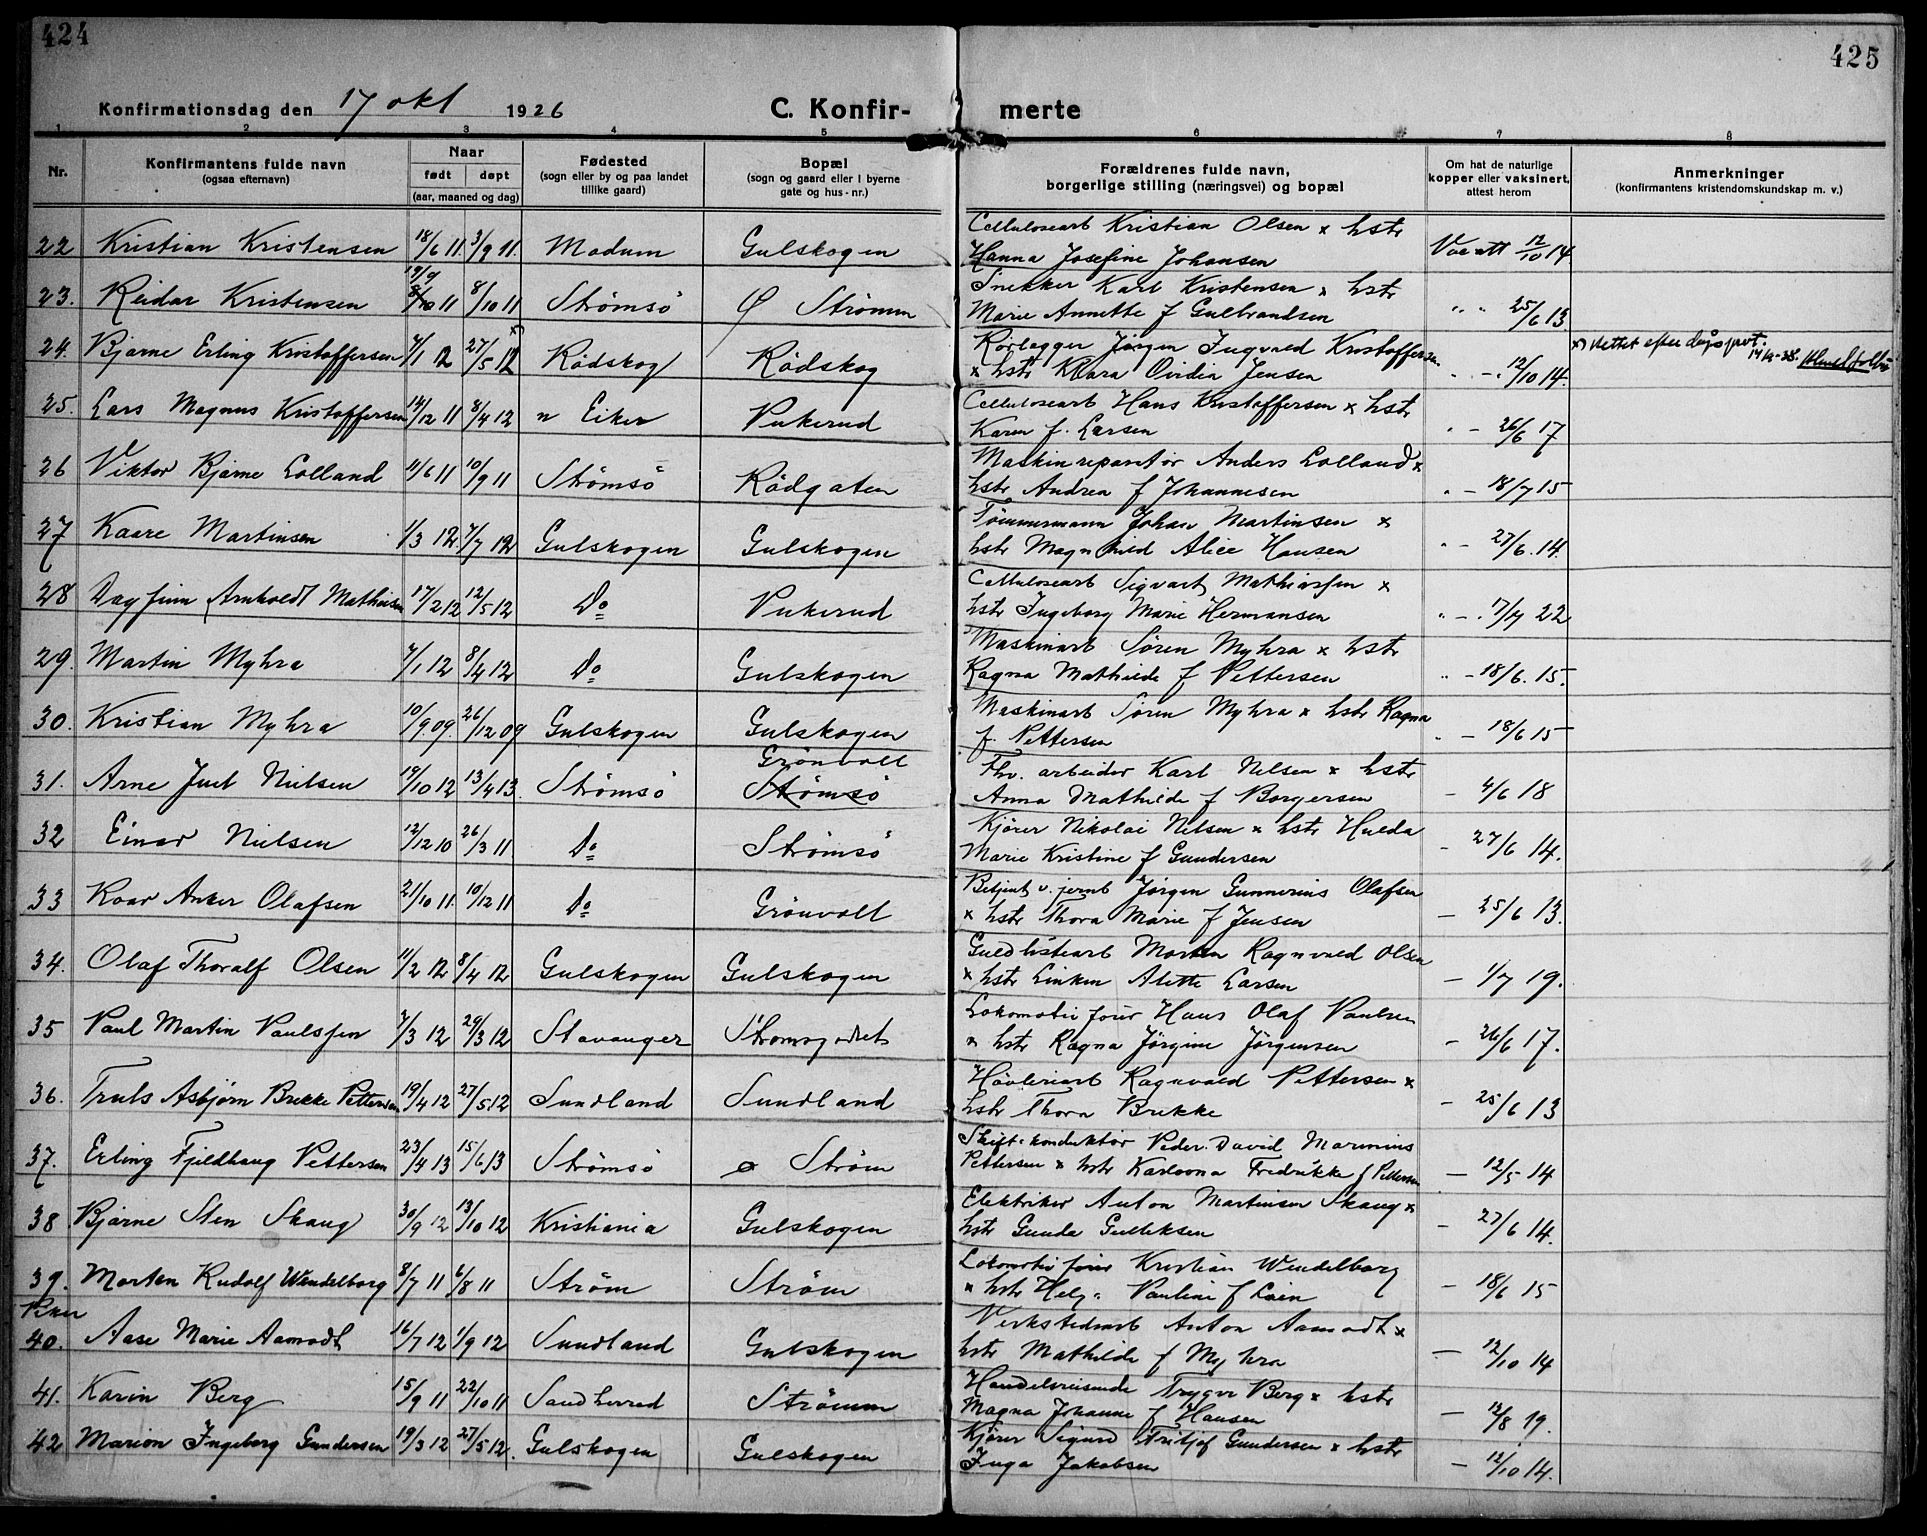 424
425
Konfirmationsdag den 17 okt 1926 C. Konfir- merte
1 2 3 4 5 6 7 8
Nr. Konfirmantens fulde navn (ogsaa efternavn) Naar født døpt (aar, maaned og dag) Fødested (sogn eller by og paa landet tillike gaard) Bopæl (sogn og gaard eller i byerne gate og hus-nr.) Forældrenes fulde navn, borgerlige stilling (næringsvei) og bopæl Om hat de naturlige kopper eller vaksinert, attest herom Anmerkninger (konfirmantens kristendomskundskap m. v.)
22 Kristian Kristensen 18/6 11. 3/9 11. Modum Gulskogen Celluloseart Kristian Olsen x hstr Hanna Josefine Johansen Vac att 12/10 14
23. Reidar Kristensen 11 8/10 11 Strømsö Strömm Snekker Karl Kristensen x hstr Marie Annette f Gulbrandsen " " 25/6 13
24. Bjarne Erling Kristoffersen 4/1 12 27/5 12 x) Rödskog Rödskog Rörlægger Jörgen Ingvald Kristoffersen x hstr Klara Ovidia Jensen " - " 12/10 14. x) Rettet efter dåpsprot.
25. Lars Magnus Kristoffersen 14/12 11 8/4 12 n Eiker Pukerud Celluloseart Hans Kristoffersen x hstr Karen f. Larsen " - 26/6 17
26 Viktor Bjarne Lolland 11/6 11 10/9 11 Strømsö Rödgaten Maskinreparatør Anders Lolland x hstr Andrea f Johannesen " - 18/7 15
27 Kaare Martinsen 1/3 12 7/7 12 Gulskogen Gulskogen Tömmermann Johan Martinsen x hstr Magnhild Alice Hansen " - 27/6. 14.
28 Dagfinn Arnholdt Mathisen 17/2 12 12/5 12 Do Pukerud Celluloseart Sigvart Mathiassen x hstr Ingeborg Marie Hermansen " - " 7/7 22
29. Martin Myhra 7/1 12 8/4 12 Do Gulskogen Maskinart Sören Myhra x hstr Ragna Mathilde f Pettersen " - 18/6. 15.
30. Kristian Myhra 10/9 09. 26/12 09 Gulskogen Gulskogen Maskinart Sören Myhra x hstr Ragna f. Pettersen " - 18/6 15
31. Arne Juel Nielsen 19/10 12 13/4 13. Strømsö Grönvolt Strømsö Fhv. arbeider Karl Nelsen x hstr Anna Mathilde f Borgersen - 4/6 18
32 Einar Nielsen 12/12 10 26/3 11 Do Strømsö Kjörer Nikolai Nelsen x hstr Hulda Marie Kristine f Gundersen - 27/6 14.
33 Roar Anker Olafsen 21/10 11. 10/12 11 Do Grönvolt Betjent v. jernb Jörgen Gunnerius Olafsen x hstr Thora Marie f Jensen - 25/6 13.
34. Olaf Thoralf Olsen 11/2 12 8/4 12 Gulskogen Gulskogen Guldlisteart Morten Ragnvald Olsen x hstr Linken Alette Larsen - 1/7 19.
35 Paul Martin Paulssen 7/3 12 29/3 12 Stavanger Strømsgodset Lokomotivförer Hans Olaf Paulsen x hstr Ragna Jörgine Jörgensen - 26/6 17.
36. Truls Asbjörn Brekke Pettersen 19/4 12 27/5 12 Sundland Sundland Hövleriart Ragnvald Pettersen x hstr Thora Brekke - 25/6 13
37. Erling Fjeldhaug Pettersen 23/4 13 15/6 13 Strømsö Ström Skift-konduktör Peder David Marinius Pettersen x hstr Karloona Fredrikke f Pettersen - 12/5 14
38 Bjarne Sten Skaug 30/9 12 13/10 12 Kristiania Gulskogen Elektriker Anton Martinsen Skaug x hstr Gunda Gulliksen - 27/6 14.
39. Morten Rudolf Wendelborg 8/7 11 6/8 11 Ström Ström Lokomotivförer Kristian Wendelborg x hstr Helga Pauline f Lien - 18/6 15
Piker
40. Aase Marie Aamodt 16/7 12 1/9 12 Sundland Gulskogen Verkstedsarb Anton Aamodt x hstr Mathilde f Myhra - 12/10 14
41. Karin Berg 15/9 11 22/10 11 Sandherred Strömm Handelsreisende Trygve Berg x hstr Magna Johanne f Hansen - 12/8 19.
42 Marion Ingeborg Gundersen 19/3 12 27/5 12. Gulskogen Gulskogen Kjörer Sigurd Fritjof Gundersen x hstr Inga Jakobsen - 12/10 14.